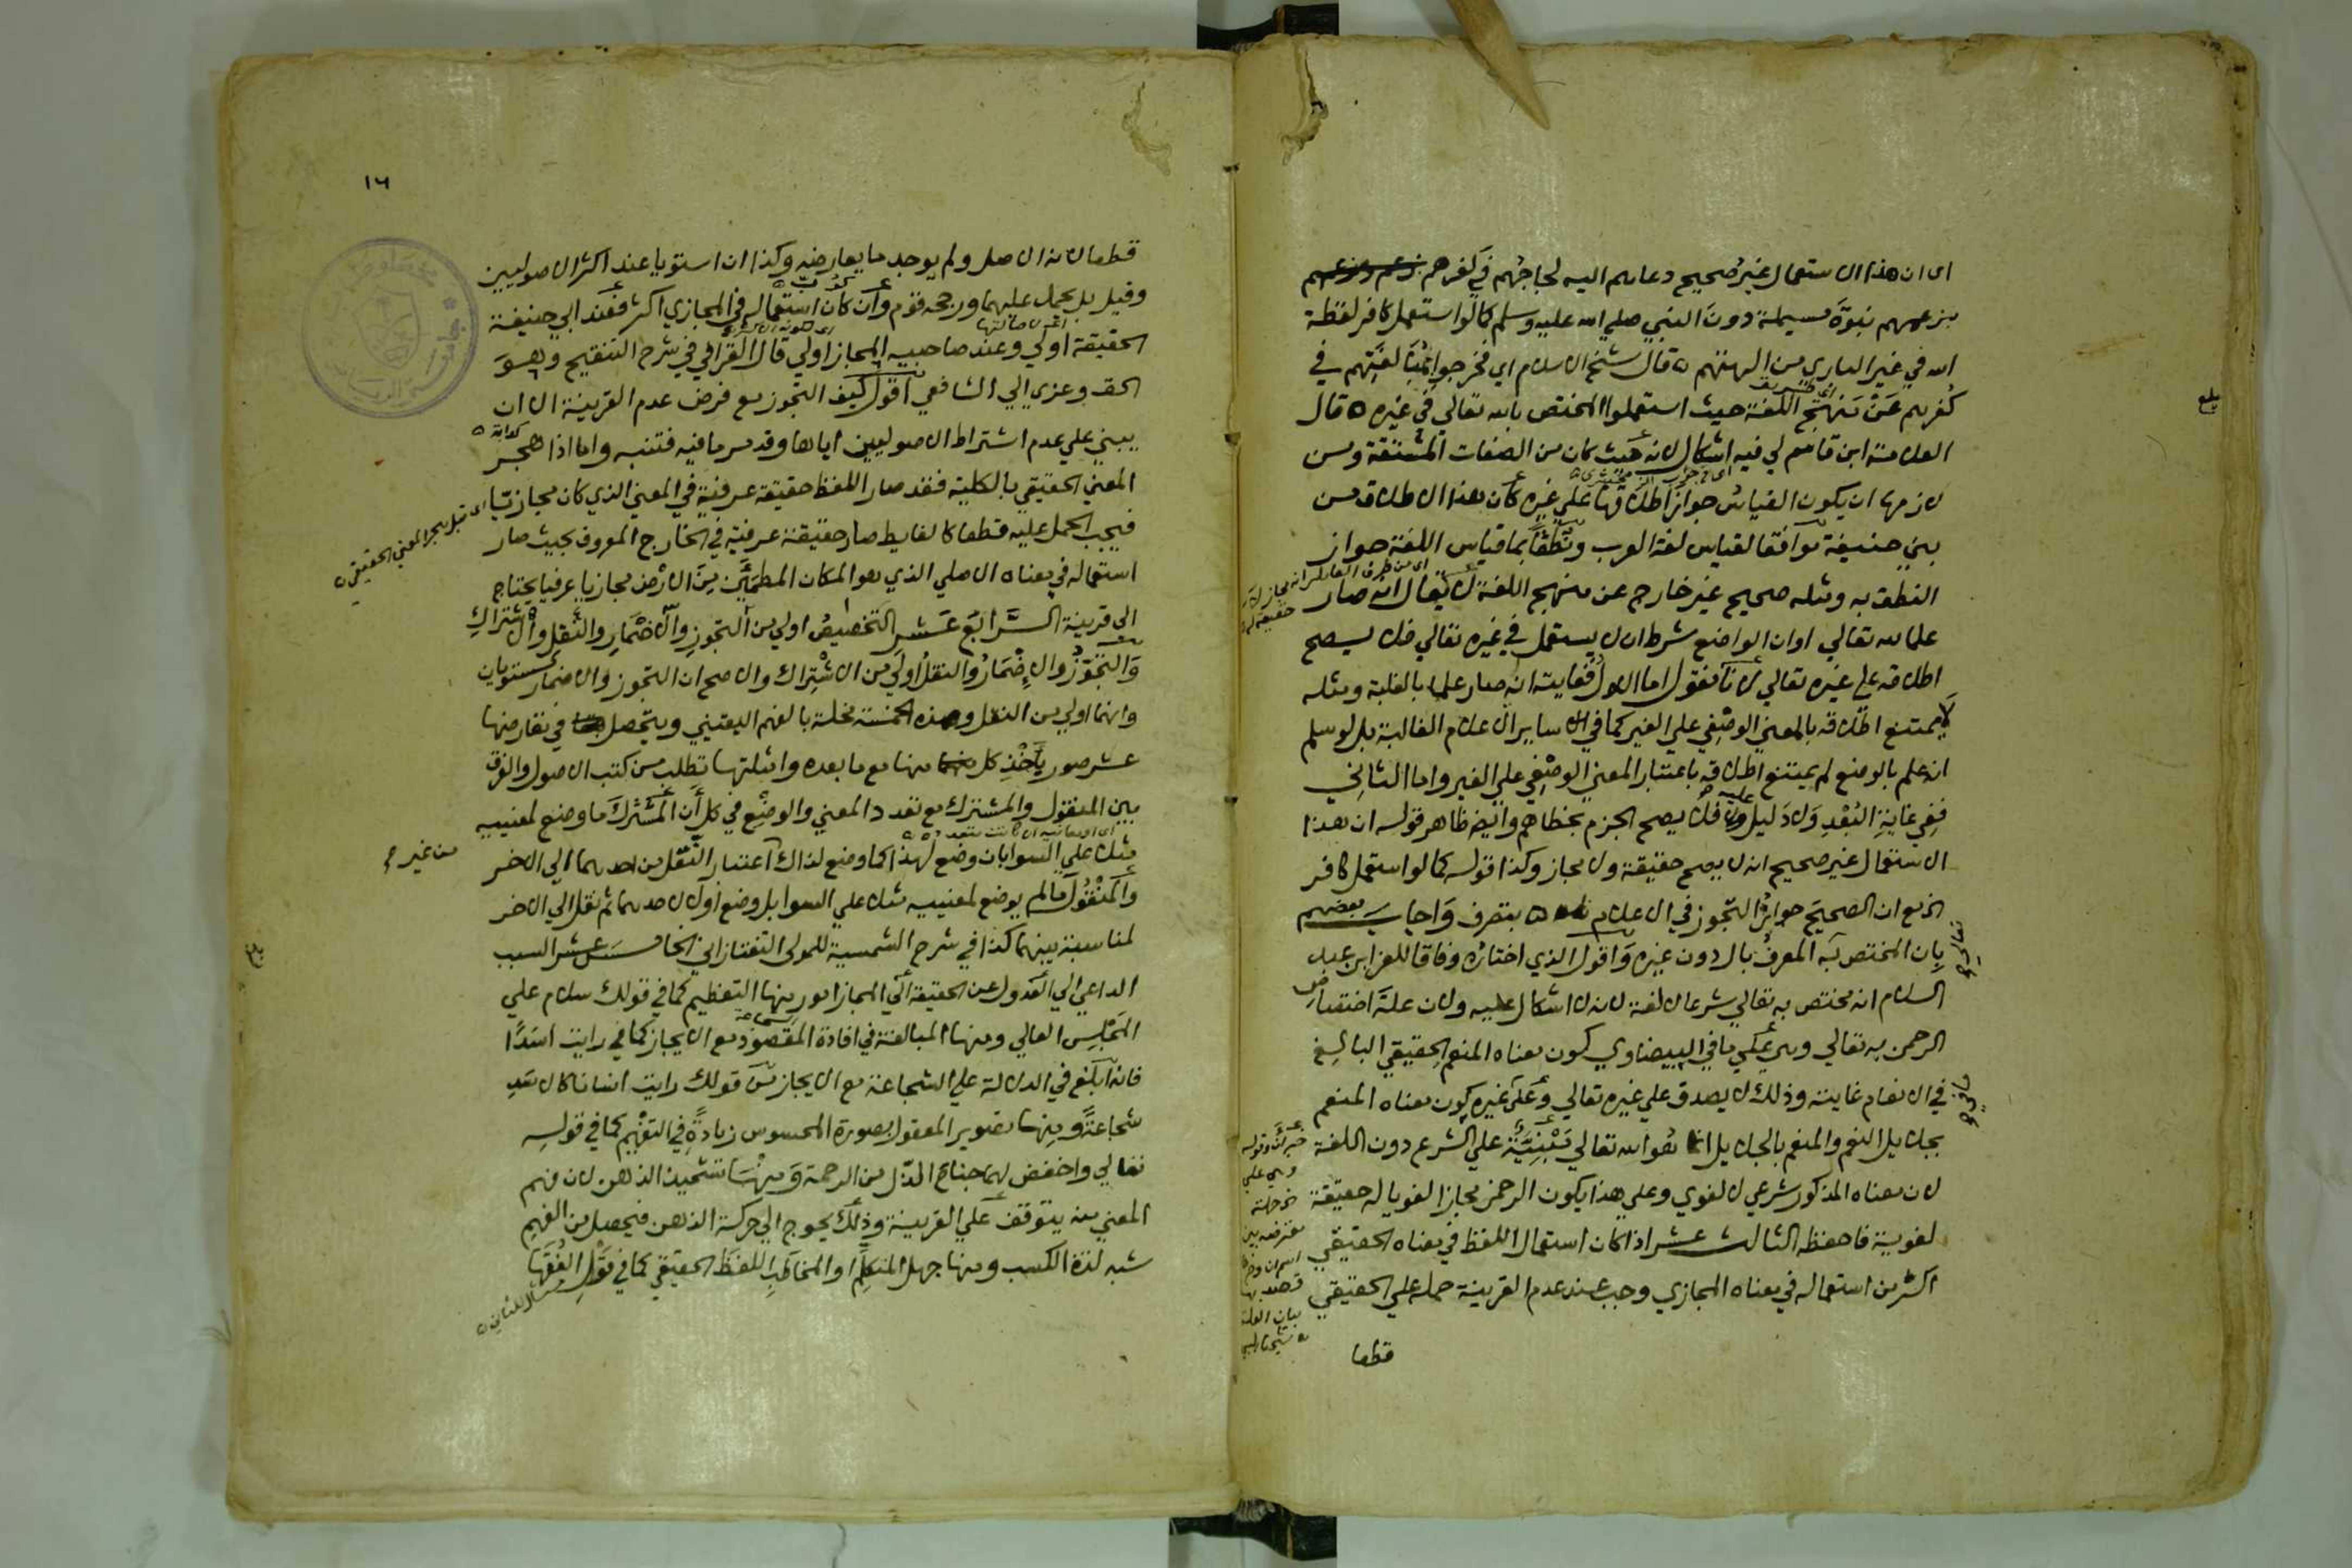 اى ان هذا الاستعمال غير صحيح دعاهم اليه لجاجهم في كفرهم
بزعمهم نبوّة مسيلمة دون النبي صلي الله عليه وسلم كما لو استعمل كافر لفظة
الله في غير الباري من الهتهم ه قال شيخ الاسلام اي فخرجوا بمبالغتهم في
كفرهم عن منهج اللغة حيث استعملوا المختص بالله تعالي في غيره ه قال
العلامة ابن قاسم لي فيه اشكال لانه حيث كان من الصفات المشتقة ومن
لازمها ان يكون القياس جواز اطلاقها علي غيره كان هذا الاطلاق من
بني حنيفة موافقا لقياس لغة العرب ونطقا بما قياس اللغة جواز
النطق به ومثله صحيح غير خارج عن منهج اللغة لا يقال انه صار
علما لله تعالي او ان الواضع شرط ان لا يستعمل في غيره تعالي فلا يصح
اطلاقه علي غيره تعالي لانا نقول اما الاول فغايته انه صار علما بالغلبة ومثله
لا يمتنع اطلاقه بالمعني الوصفي علي الغير كما في سائر الاعلام الغالبة بل لو سلم
انه علم بالوضع لم يمتنع اطلاقه باعتبار المعني الوصفي علي الغير واما الثاني
ففي غاية البعد ولا دليل عليه فلا يصح الجزم بخطاهم وايضا ظاهر قوله ان هذا
الاستعمال غير صحيح انه لا يصح حقيقة ولا مجاز وكذا قوله كما لو استعمل كافر
الخ مع ان الصحيح جواز التجوز في الاعلام ه بتصرف واجاب بعضهم
بان المختص به المعرف بال دون غيره واقول الذي اختاره وفاقا للعز ابن عبد
السلام انه مختص به تعالي شرعا لا لغة لانه لا اشكال عليه ولان علة اختصاص
الرحمن به تعالي وهي علي ما في البيضاوي كون معناه المنعم الحقيقي البالغ
في الانعام غايته وذلك لا يصدق علي غيره تعالي وعلي غيره كون معناه المنعم
بجلايل النعم والمنعم بالجلايل هو الله تعالي مبنية علي الشرع دون اللغة
لان معناه المذكور شرعي لا لغوي وعلي هذا يكون الرحمن مجازا لغويا له حقيقة
لغوية فاحفظه الثالث عشر اذا كان استعمال اللفظ في معناه الحقيقي
اكثر من استعماله في معناه المجازي وجب عند عدم القرينة حمله علي الحقيقي
قطعا
١٦
قطعا لانه الاصل ولم يوجد ما يعارضه وكذا ان استويا عند اكثر الاصوليين
وقيل بل يحمل عليهما ورجحه قوم وان كان استعماله في المجازي اكثر فعند ابي حنيفة
الحقيقة اولي وعند صاحبيه المجاز اولي قال القرافي في شرح التنقيح وهو
الحق وعزي الي الشافعي اقول كيف التجوز مع فرض عدم القرينة الا ان
يبني علي عدم اشتراط الاصوليين اياها وقد مر ما فيه فتنبه واما اذا هجر
المعني الحقيقي بالكلية فقد صار اللفظ حقيقة عرفية في المعني الذي كان مجازيا
اى قبل هجر المعني الحقيقي ه
فيجب الحمل عليه قطعا كالغايط صار حقيقة عرفية في الخارج المعروف بحيث صار
استعماله في معناه الاصلي الذي هو المكان المطمئن من الارض مجازيا عرفيا يحتاج
الى قرينة الرابع عشر التخصيص اولي من التجوز والاضمار والنقل والاشتراك
والتجوز والاضمار والنقل اولي من الاشتراك والاصح ان التجوز والاضمار مستويان
وانهما اولي من النقل وهذه الخمسة مخلة بالفهم اليقيني ويتحصل في تعارضها
عشر صور ياخذ كل منها مع ما بعده وامثلتها تطلب من كتب الاصول والفرق
بين المنقول والمشترك مع تعدد المعني والوضع في كل ان المشترك ما وضع لمعنييه
مثلا علي السوا بان وضع لهذا كما وضع لذاك اعتبار النقل من احدهما الي الاخر
من غير
والمنقول ما لم يوضع لمعنييه مثلا علي السوا بل وضع اولا لاحدهما ثم نقل الي الاخر
لمناسبة بينهما كذا في شرح الشمسية للمولى التفتازاني الخامس عشر السبب
الداعي الي العدول عن الحقيقة الي المجاز امور منها التعظيم كما في قولك سلام علي
المجلس العالي ومنها المبالغة في افادة المقصود مع الايجاز كما في رايت اسدا
فانه ابلغ في الدلالة علي الشجاعة مع الايجاز من قولك رايت انسانا كالاسد
شجاعة ومنها تصوير المعقول بصورة المحسوس زيادة في التفهيم كما في قوله
تعالي واخفض لهما جناح الذل من الرحمة ومنها تشحيذ الذهن لان فهم
المعني منه يتوقف علي القرينة وذلك يحوج الي حركة الذهن فيحصل من الفهم
شبه لذة الكسب ومنها جهل المتكلم او المخاطب اللفظ الحقيقي كما في قول الفقها